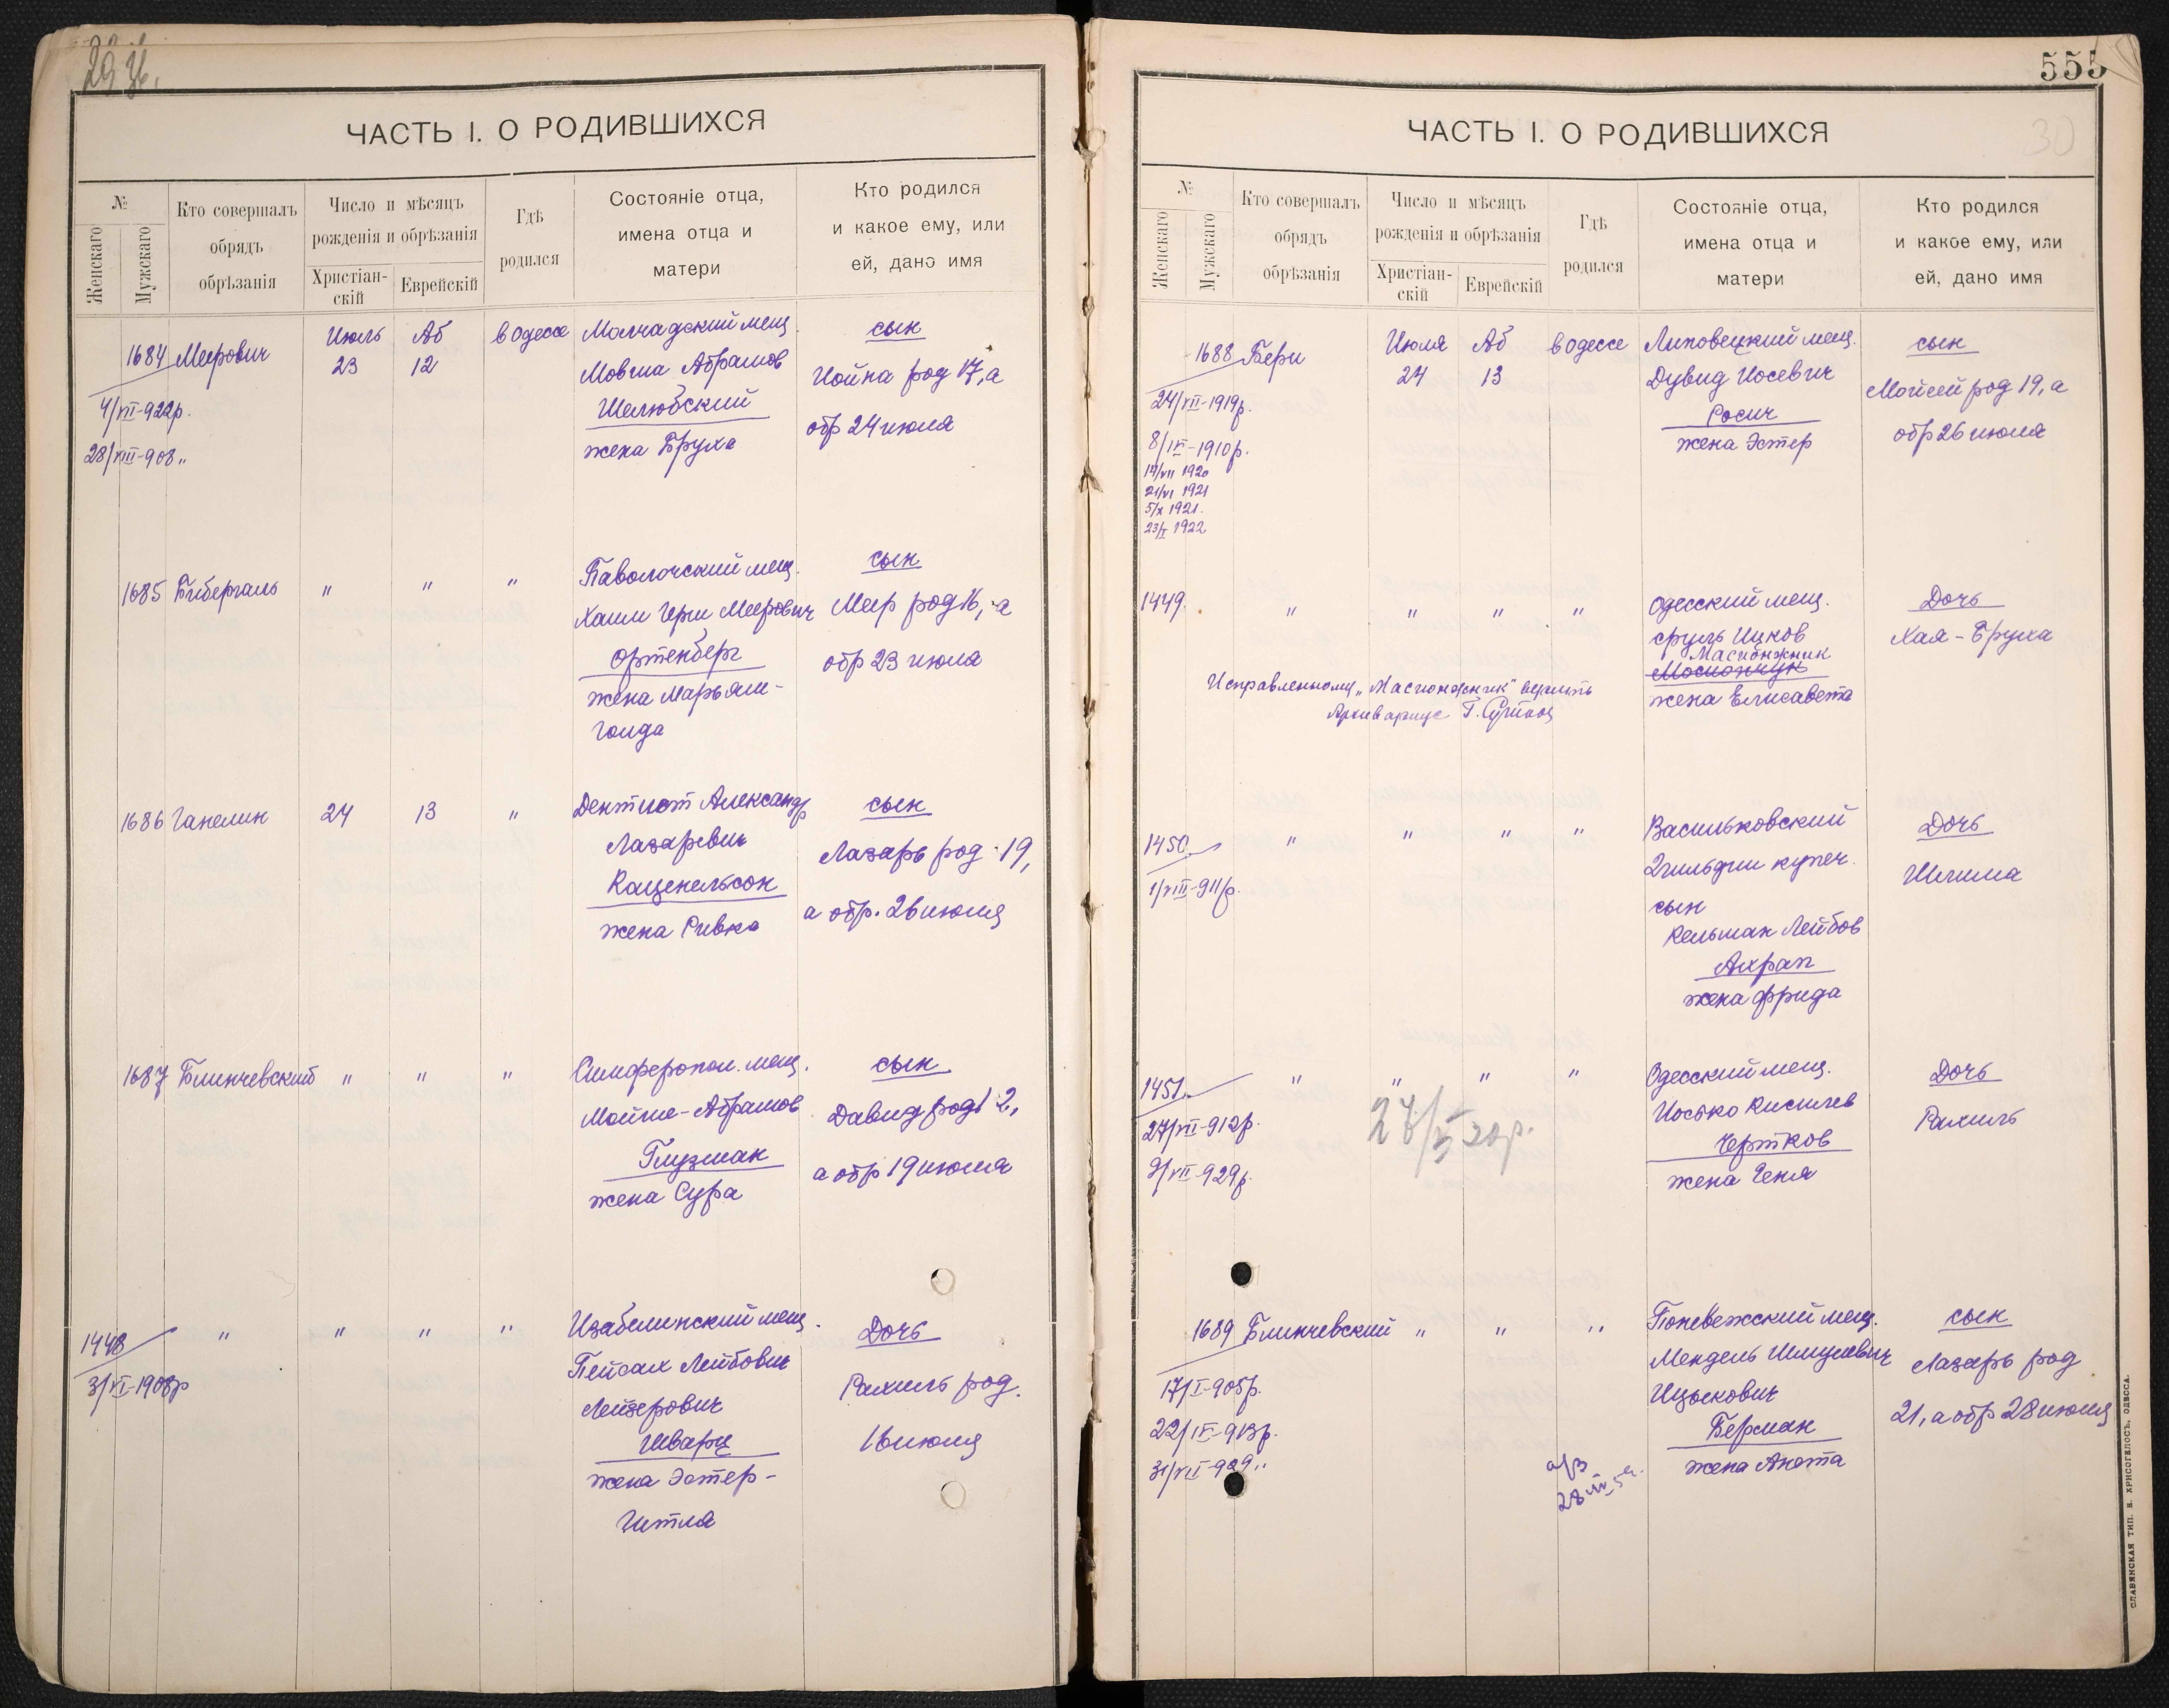 ЧАСТЬ I. О РОДИВШИХСЯ
№
Женскаго
Мужскаго
Кто совершалъ
обрядъ
обрѣзанія
Число и мѣсяцъ
рожденія и обрѣзанія
Христіан-
скій
Еврейскій
Гдѣ
родился
Состояніе отца,
имена отца и
матери
Кто родился
и какое ему, или
ей, дано имя
1684 Меерович Июль 23 Аб 12 в Одессе
4/VII-922р.
28/VIII-908 "
Молчадский мещ.
Мовша Абрамов
Шелюбский
жена Бруха
сын
Иойна род 17, а
обр 24 июля
1685 Бибергаль " " "
Паволочский мещ.
Хаим Герш Меерович
Ортенберг
жена Марьям-
Голда
сын
Меер род 16, а
обр 23 июля
1686 Ганелин 24 13 "
Дентист Александр
Лазаревич
Каценельсон
жена Ривка
сын
Лазарь род 19,
а обр. 26 июля
1687 Блинчевский " " "
Симферопол. мещ.
Мойше-Абрамов
Глузман
жена Сура
сын
Давид род 12,
а обр 19 июля
1448 " " " "
3/VI-1908р
Изабелинский мещ.
Пейсах Лейбович
Лейзерович
Шварц
жена Эстер-
Гитля
Дочь
Рахиль род.
16 июля
555
30
ЧАСТЬ I. О РОДИВШИХСЯ
№
Женскаго
Мужскаго
Кто совершалъ
обрядъ
обрѣзанія
Число и мѣсяцъ
рожденія и обрѣзанія
Христіан-
скій
Еврейскій
Гдѣ
родился
Состояніе отца,
имена отца и
матери
Кто родился
и какое ему, или
ей, дано имя
1688 Бери Июля 24 Аб 13 в Одессе
24/VII-1919р.
8/IX-1910р.
14/VII 1920
21/VI 1921
5/X 1921.
23/I 1922
Липовецкий мещ.
Дувид Иосевич
Росич
жена Эстер
сын
Мойсей род 19, а
обр 26 июля
1449. " " " "
Одесский мещ.
Сруль Ицков
Масионжник
жена Елисавета
Дочь
Хая-Бруха
Исправленному "Масионжник" верить
1450. " " " "
1/VIII-911р.
Васильковский
2 гильдии купеч.
сын
Кельман Лейбов
Ахрап
жена Фрида
Дочь
Шлима
1451. " " " "
27/VII-912р.
9/VII-929р.
Одесский мещ.
Иосько Кисилев
Чертков
жена Геня
Дочь
Рахиль
1689 Блинчевский " " "
17/I-905р.
22/IX-913р.
31/VII-929 "
Поневежский мещ.
Мендель Шмулевич
Ицыкович
Берман
жена Анета
сын
Лазарь род
21, а обр 28 июля
СЛАВЯНСКАЯ ТИП. Н. ХРИСОГЕЛОСЪ, ОДЕССА.